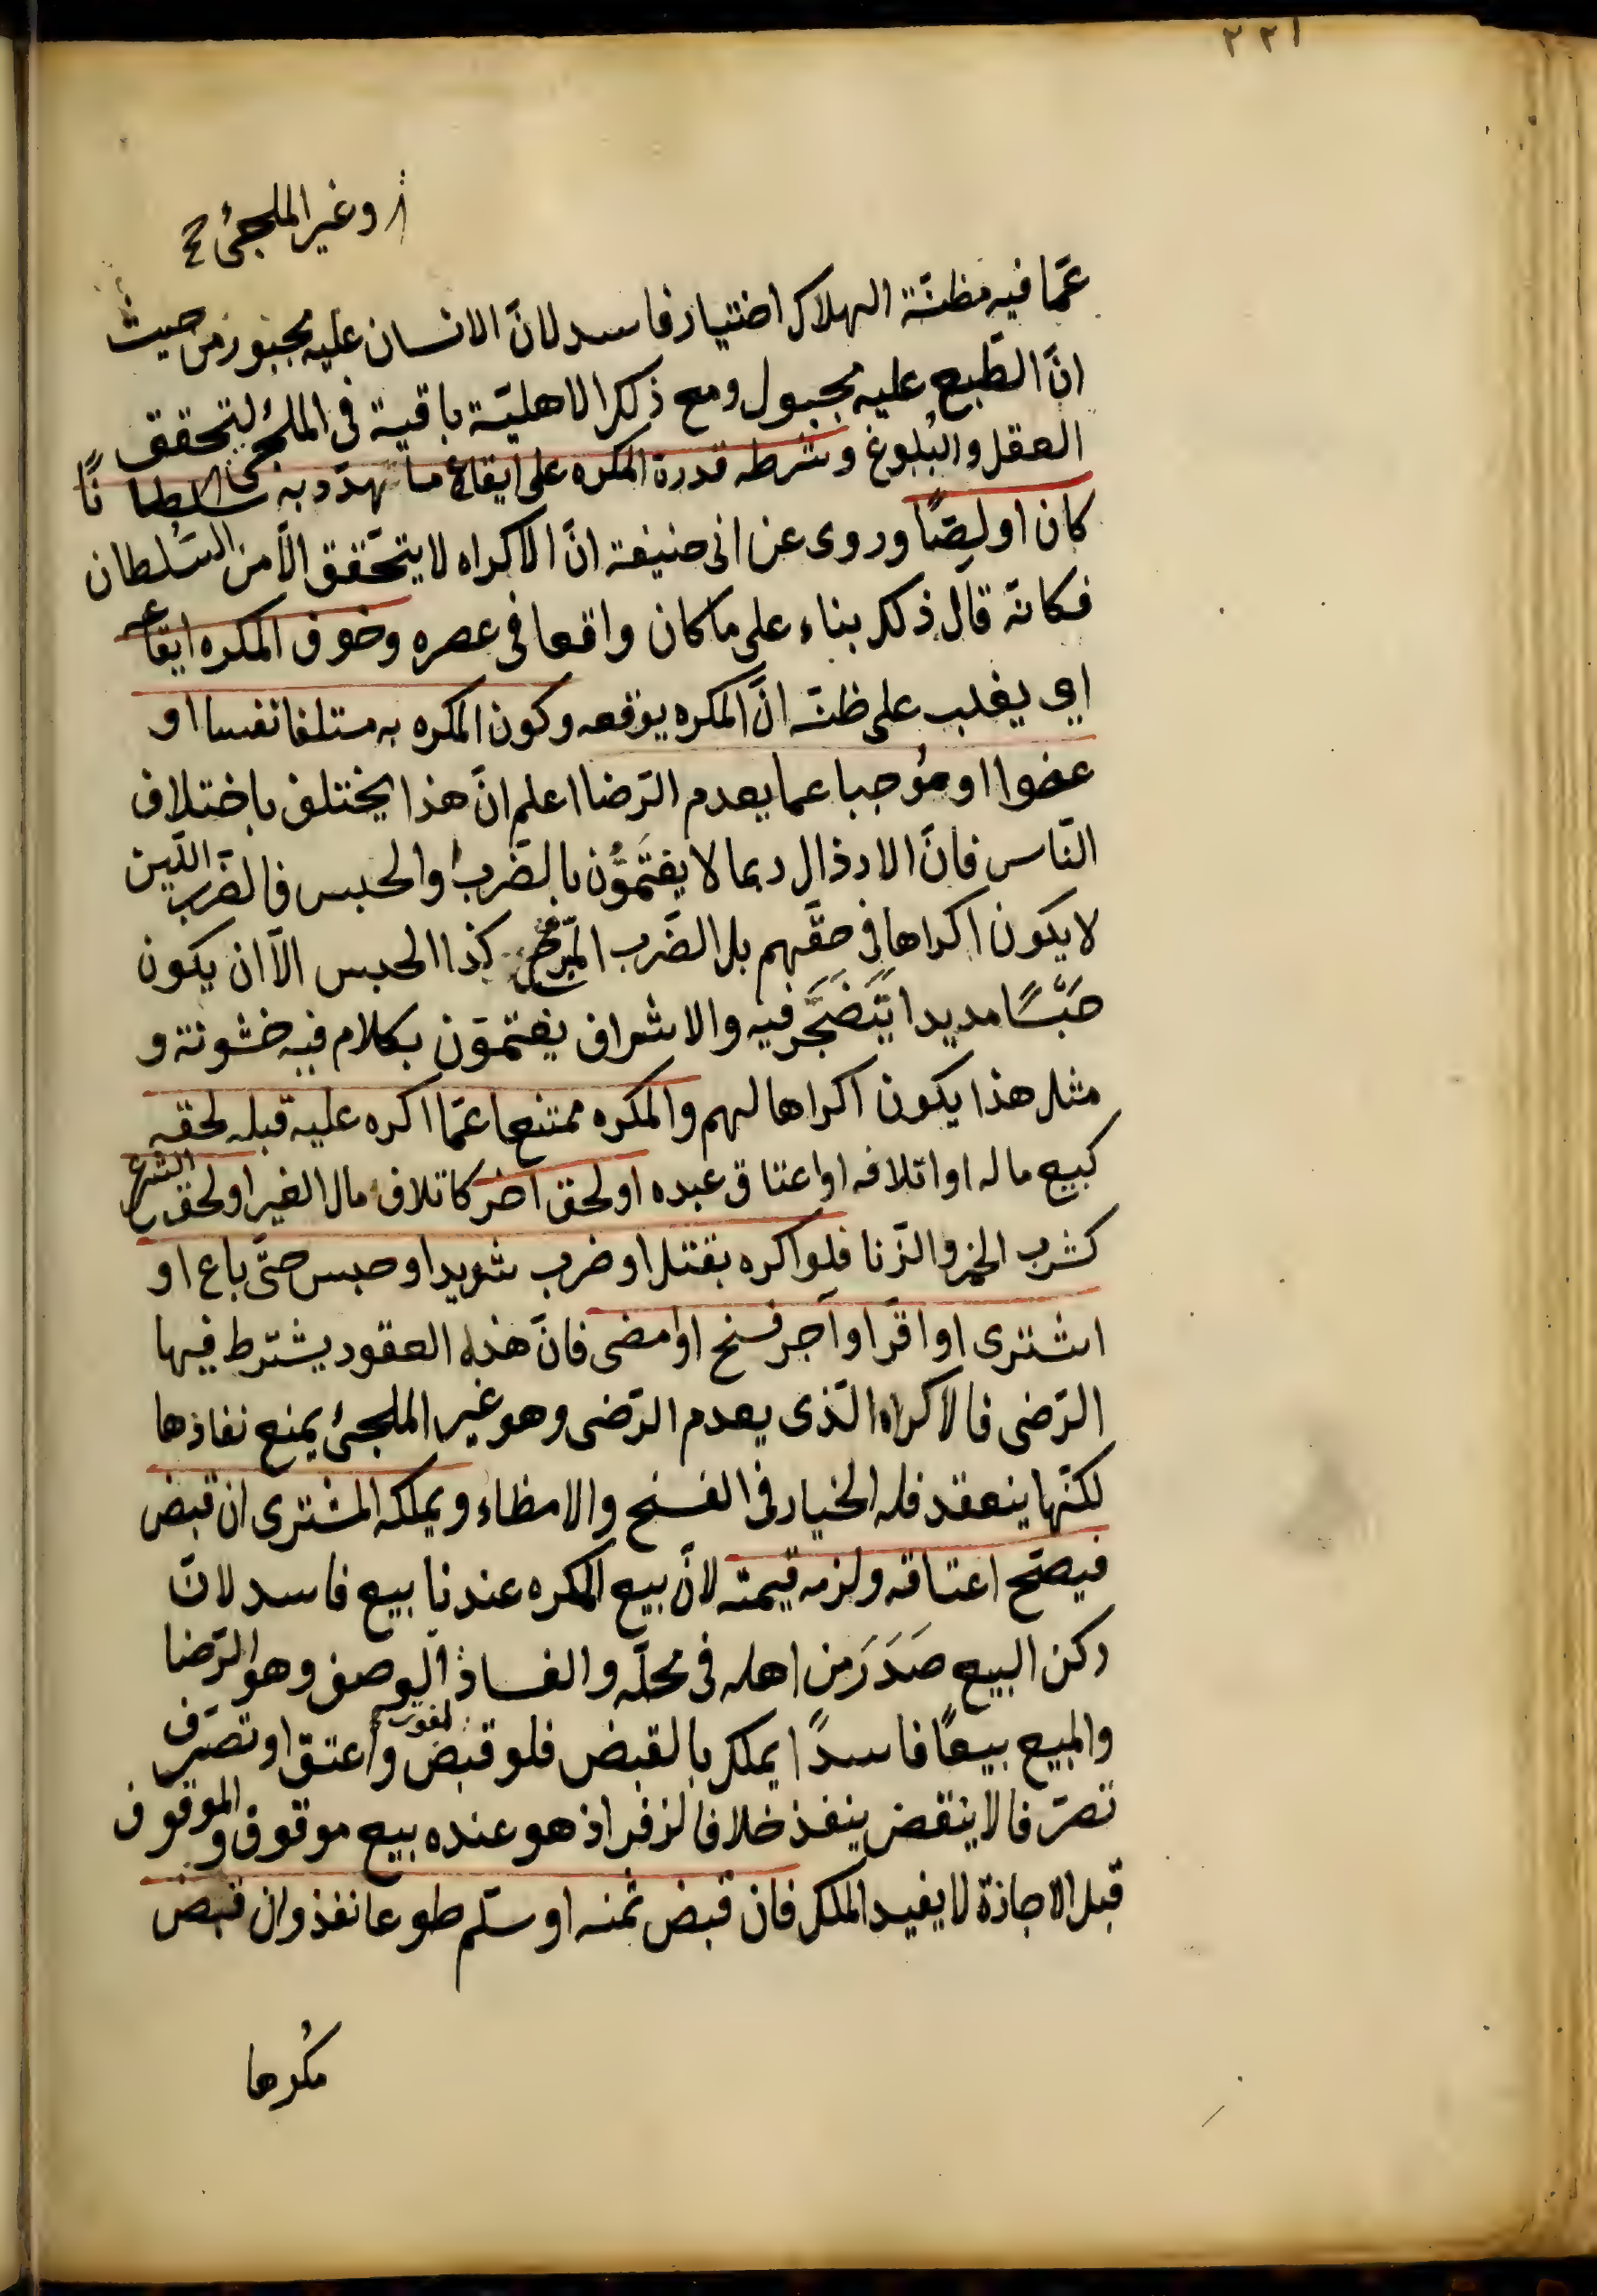 ٢٢١
وغير الملجئ
عمّا فيه مظنّة الهلاك اختيار فاسد لانّ الانسان عليه مجبور من حيث
انّ الطّبع عليه مجبول ومع ذلك الاهليّة باقية فى الملجئ لتحقق
العقل والبُلوغ وشرطه قدرة المكره على ايقاع ما تهدّد به سلطانًا
كان او لصًّا وروى عن ابى حنيفة انّ الاكراه لا يتحَقق الّا من السُلطان
فكانّه قال ذلك بناء على ما كان واقعا فى عصره وخوف المكره ايقاعه
اى يغلب على ظنّه انّ المكره يوقعه وكون المكره به متلفا نفسا او
عضوا او مُوجبا عما يعدم الرّضا اعلم انّ هذا يختلف باختلاف
النّاس فانّ الارذال ربما لا يغتَمُّون بالضَّرب والحبس فالضّرب اللّين
لا يكون اكراها فى حقّهم بل الضَّرب المبّرح كذا الحبس الّا ان يكون
حَبْسًا مديدا يَتَضَجَّر فيه والاشراف يغتمّون بكلام فيه خشونة و
مثل هذا يكون اكراها لهم والمكره ممتنعا عمّا اكره عليه قبله لحقه
كبيع ماله او اتلافه او اعتاق عبده او لحق آخر كاتلاف مال الغير او لحق الشرع
كشرب الخمر والزّنا فلو اكره بقتل او ضرب شديد او حبس حتّى باع او
اشترى او اقرّ او آجر فسخ او امضى فانّ هذه العقود يشترط فيها
الرّضى فالاكراه الّذى يعدم الرّضى وهو غير الملجئ يمنع نفاذها
لكنّها ينعقد فله الخيار فى الفسخ والامظاء ويملكه المشترى ان قبض
فيصّح اعتاقه ولزمه قيمته لانّ بيع المكره عندنا بيع فاسد لانّ
ركن البيع صَدَرَ من اهله فى محلّه والفساد لفوت الوصف وهو الرّضا
والمبيع بيعًا فاسدًا يملك بالقبض فلو قبض واعتق او تصرّف
تصرّفا لا ينقض ينفذ خلافا لزفر اذ هو عنده بيع موقوف والموقوف
قبل الاجازة لا يفيد الملك فان قبض ثمنه او سلّم طوعا نفذ وان قبض
مُكرها